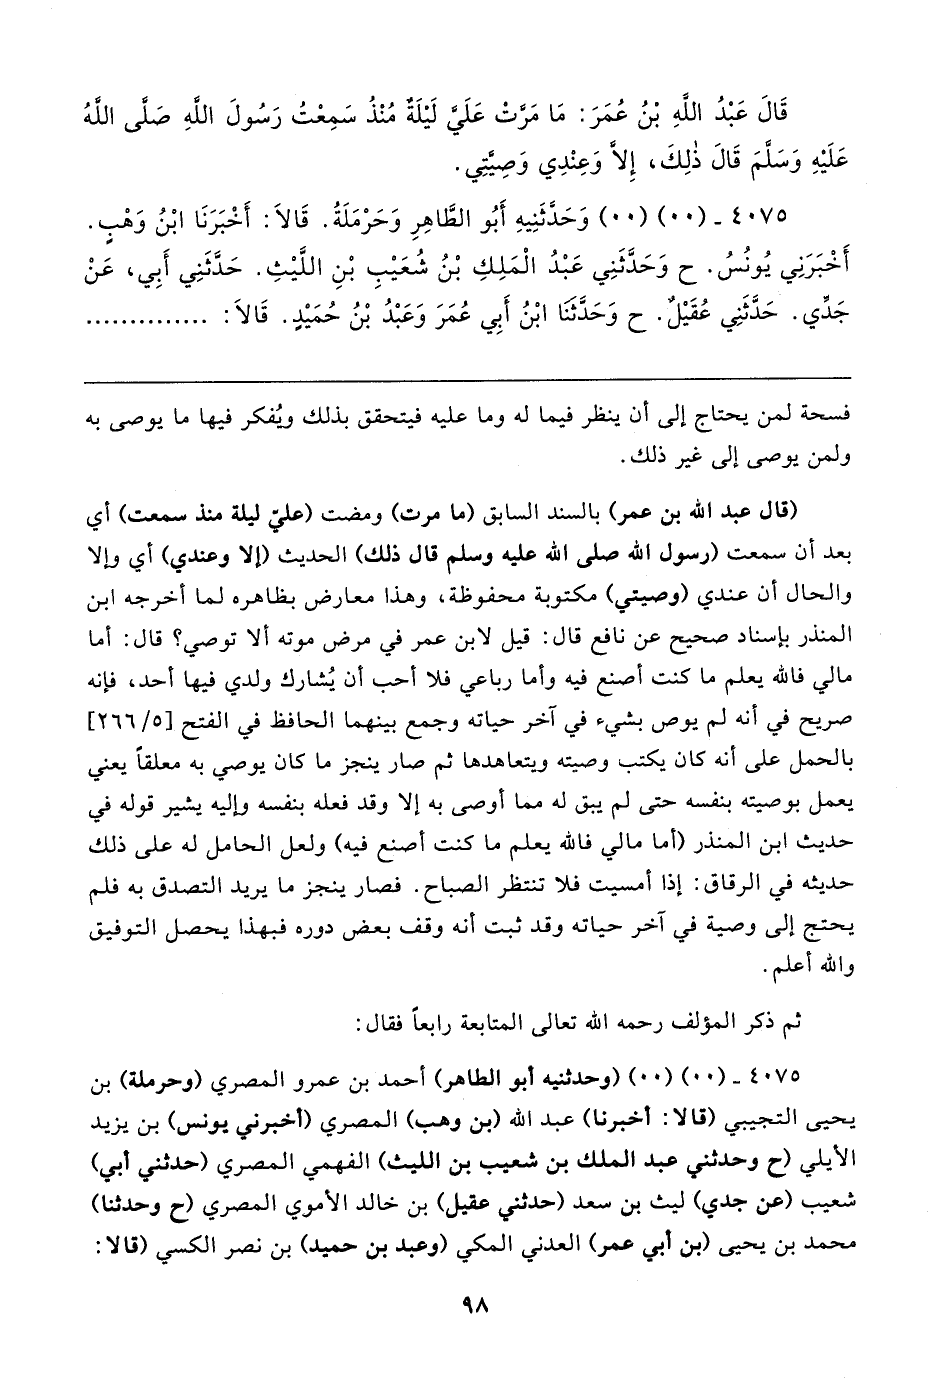 قَالَ عَبْدُ اللَّهِ بْنُ عُمَرَ: مَا مَرَّتْ عَلَيَّ لَيْلَةٌ مُنْذُ سَمِعْتُ رَسُولَ اللَّهِ صَلَّى اللَّهُ
عَلَيْهِ وَسَلَّمَ قَالَ ذٰلِكَ، إِلاَّ وَعِنْدِي وَصِيَّتِي.
٤٠٧٥ ـ (٠٠) (٠٠) وَحَدَّثَنِيهِ أَبُو الطَّاهِرِ وَحَرْمَلَةُ. قَالاَ: أَخْبَرَنَا ابْنُ وَهْبٍ.
أَخْبَرَنِي يُونُسُ. ح وَحَدَّثَنِي عَبْدُ الْمَلِكِ بْنُ شُعَيْبِ بْنِ اللَّيْثِ. حَدَّثَنِي أَبِي، عَنْ
جَدِّي. حَدَّثَنِي عُقَيْلٌ. ح وَحَدَّثَنَا ابْنُ أَبِي عُمَرَ وَعَبْدُ بْنُ حُمَيْدٍ. قَالاَ: ..............
فسحة لمن يحتاج إلى أن ينظر فيما له وما عليه فيتحقق بذلك ويُفكر فيها ما يوصى به
ولمن يوصى إلى غير ذلك.
(قال عبد الله بن عمر) بالسند السابق (ما مرت) ومضت (عليّ ليلة منذ سمعت) أي
بعد أن سمعت (رسول الله صلى الله عليه وسلم قال ذلك) الحديث (إلا وعندي) أي وإلا
والحال أن عندي (وصيتي) مكتوبة محفوظة، وهذا معارض بظاهره لما أخرجه ابن
المنذر بإسناد صحيح عن نافع قال: قيل لابن عمر في مرض موته ألا توصي؟ قال: أما
مالي فالله يعلم ما كنت أصنع فيه وأما رباعي فلا أحب أن يُشارك ولدي فيها أحد، فإنه
صريح في أنه لم يوص بشيء في آخر حياته وجمع بينهما الحافظ في الفتح [٥/ ٢٦٦]
بالحمل على أنه كان يكتب وصيته ويتعاهدها ثم صار ينجز ما كان يوصي به معلقاً يعني
يعمل بوصيته بنفسه حتى لم يبق له مما أوصى به إلا وقد فعله بنفسه وإليه يشير قوله في
حديث ابن المنذر (أما مالي فالله يعلم ما كنت أصنع فيه) ولعل الحامل له على ذلك
حديثه في الرقاق: إذا أمسيت فلا تنتظر الصباح. فصار ينجز ما يريد التصدق به فلم
يحتج إلى وصية في آخر حياته وقد ثبت أنه وقف بعض دوره فبهذا يحصل التوفيق
والله أعلم.
ثم ذكر المؤلف رحمه الله تعالى المتابعة رابعاً فقال:
٤٠٧٥ ـ (٠٠) (٠٠) (وحدثنيه أبو الطاهر) أحمد بن عمرو المصري (وحرملة) بن
يحيى التجيبي (قالا: أخبرنا) عبد الله (بن وهب) المصري (أخبرني يونس) بن يزيد
الأيلي (ح وحدثني عبد الملك بن شعيب بن الليث) الفهمي المصري (حدثني أبي)
شعيب (عن جدي) ليث بن سعد (حدثني عقيل) بن خالد الأموي المصري (ح وحدثنا)
محمد بن يحيى (بن أبي عمر) العدني المكي (وعبد بن حميد) بن نصر الكسي (قالا:
٩٨